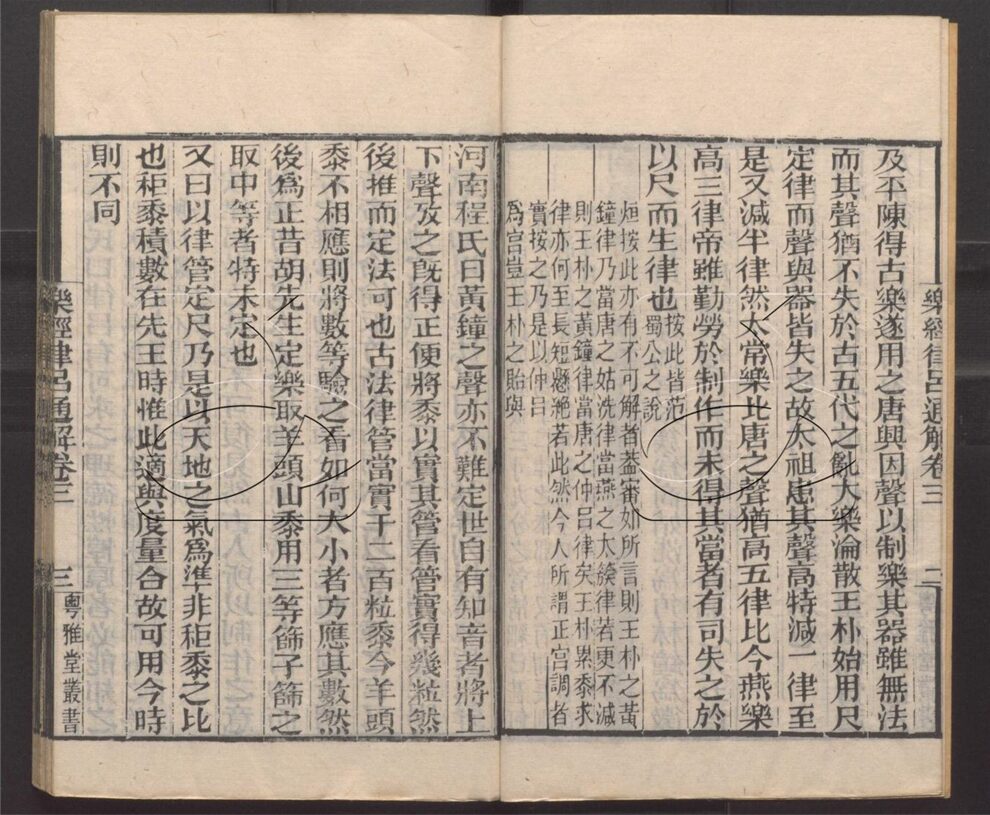 樂經律呂通解卷三
二
及平陳得古樂遂用之唐興因聲以制樂其器雖無法
而其聲猶不失於古五代之亂大樂淪散王朴始用尺
定律而聲與器皆失之故太祖患其聲高特減一律至
是又減半律然太常樂比唐之聲猶高五律比今燕樂
高三律帝雖勤勞於制作而未得其當者有司失之於
以尺而生律也
按此皆范
蜀公之說
烜按此亦有不可解者蓋審如所言則王朴之黃
鐘律乃當唐之姑洗律當燕之太簇律若更不減
則王朴之黃鐘律當唐之仲呂矣王朴累黍求
律亦何至長短懸絶若此然今人所謂正宮調者
實按之乃是以仲呂
爲宮豈王朴之貽與
河南程氏曰黃鐘之聲亦不難定世自有知音者將上
下聲攷之旣得正便將黍以實其管看管實得幾粒然
後推而定法可也古法律管當實千二百粒黍今羊頭
黍不相應則將數等驗之看如何大小者方應其數然
後爲正昔胡先生定樂取羊頭山黍用三等篩子篩之
取中等者特未定也
又曰以律管定尺乃是以天地之氣爲準非秬黍之比
也秬黍積數在先王時惟此適與度量合故可用今時
則不同
樂經律呂通解卷三
三
粵雅堂叢書